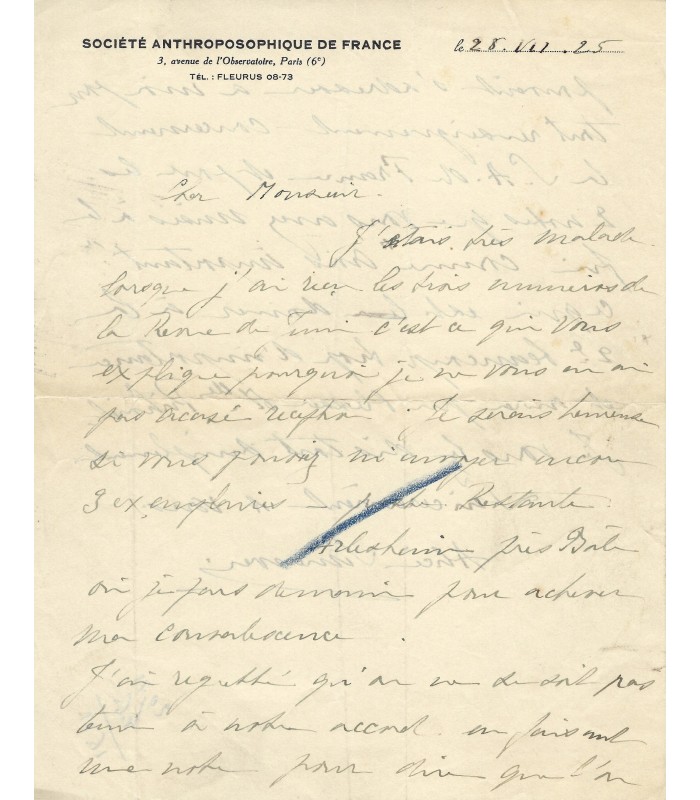 SOCIÉTÉ ANTHROPOSOPHIQUE DE FRANCE
3, avenue de l'Observatoire, Paris (6e)
TÉL. : FLEURUS 08-73
le 28. VII. 25
Cher Monsieur.
J'étais très malade
lorsque j'ai reçu les trois numéros de
la Revue de c'est ce qui vous
explique pourquoi je ne vous en ai
pas accusé réception. Je serais heureuse
si vous pouviez m'envoyer encore
3 exemplaires Poste Restante.
Arlesheim près Bâle
où je pars demain pour achever
ma convalescence.
J'ai regretté qu'on ne se soit pas
tenu à notre accord. en faisant
une note pour dire que l'on